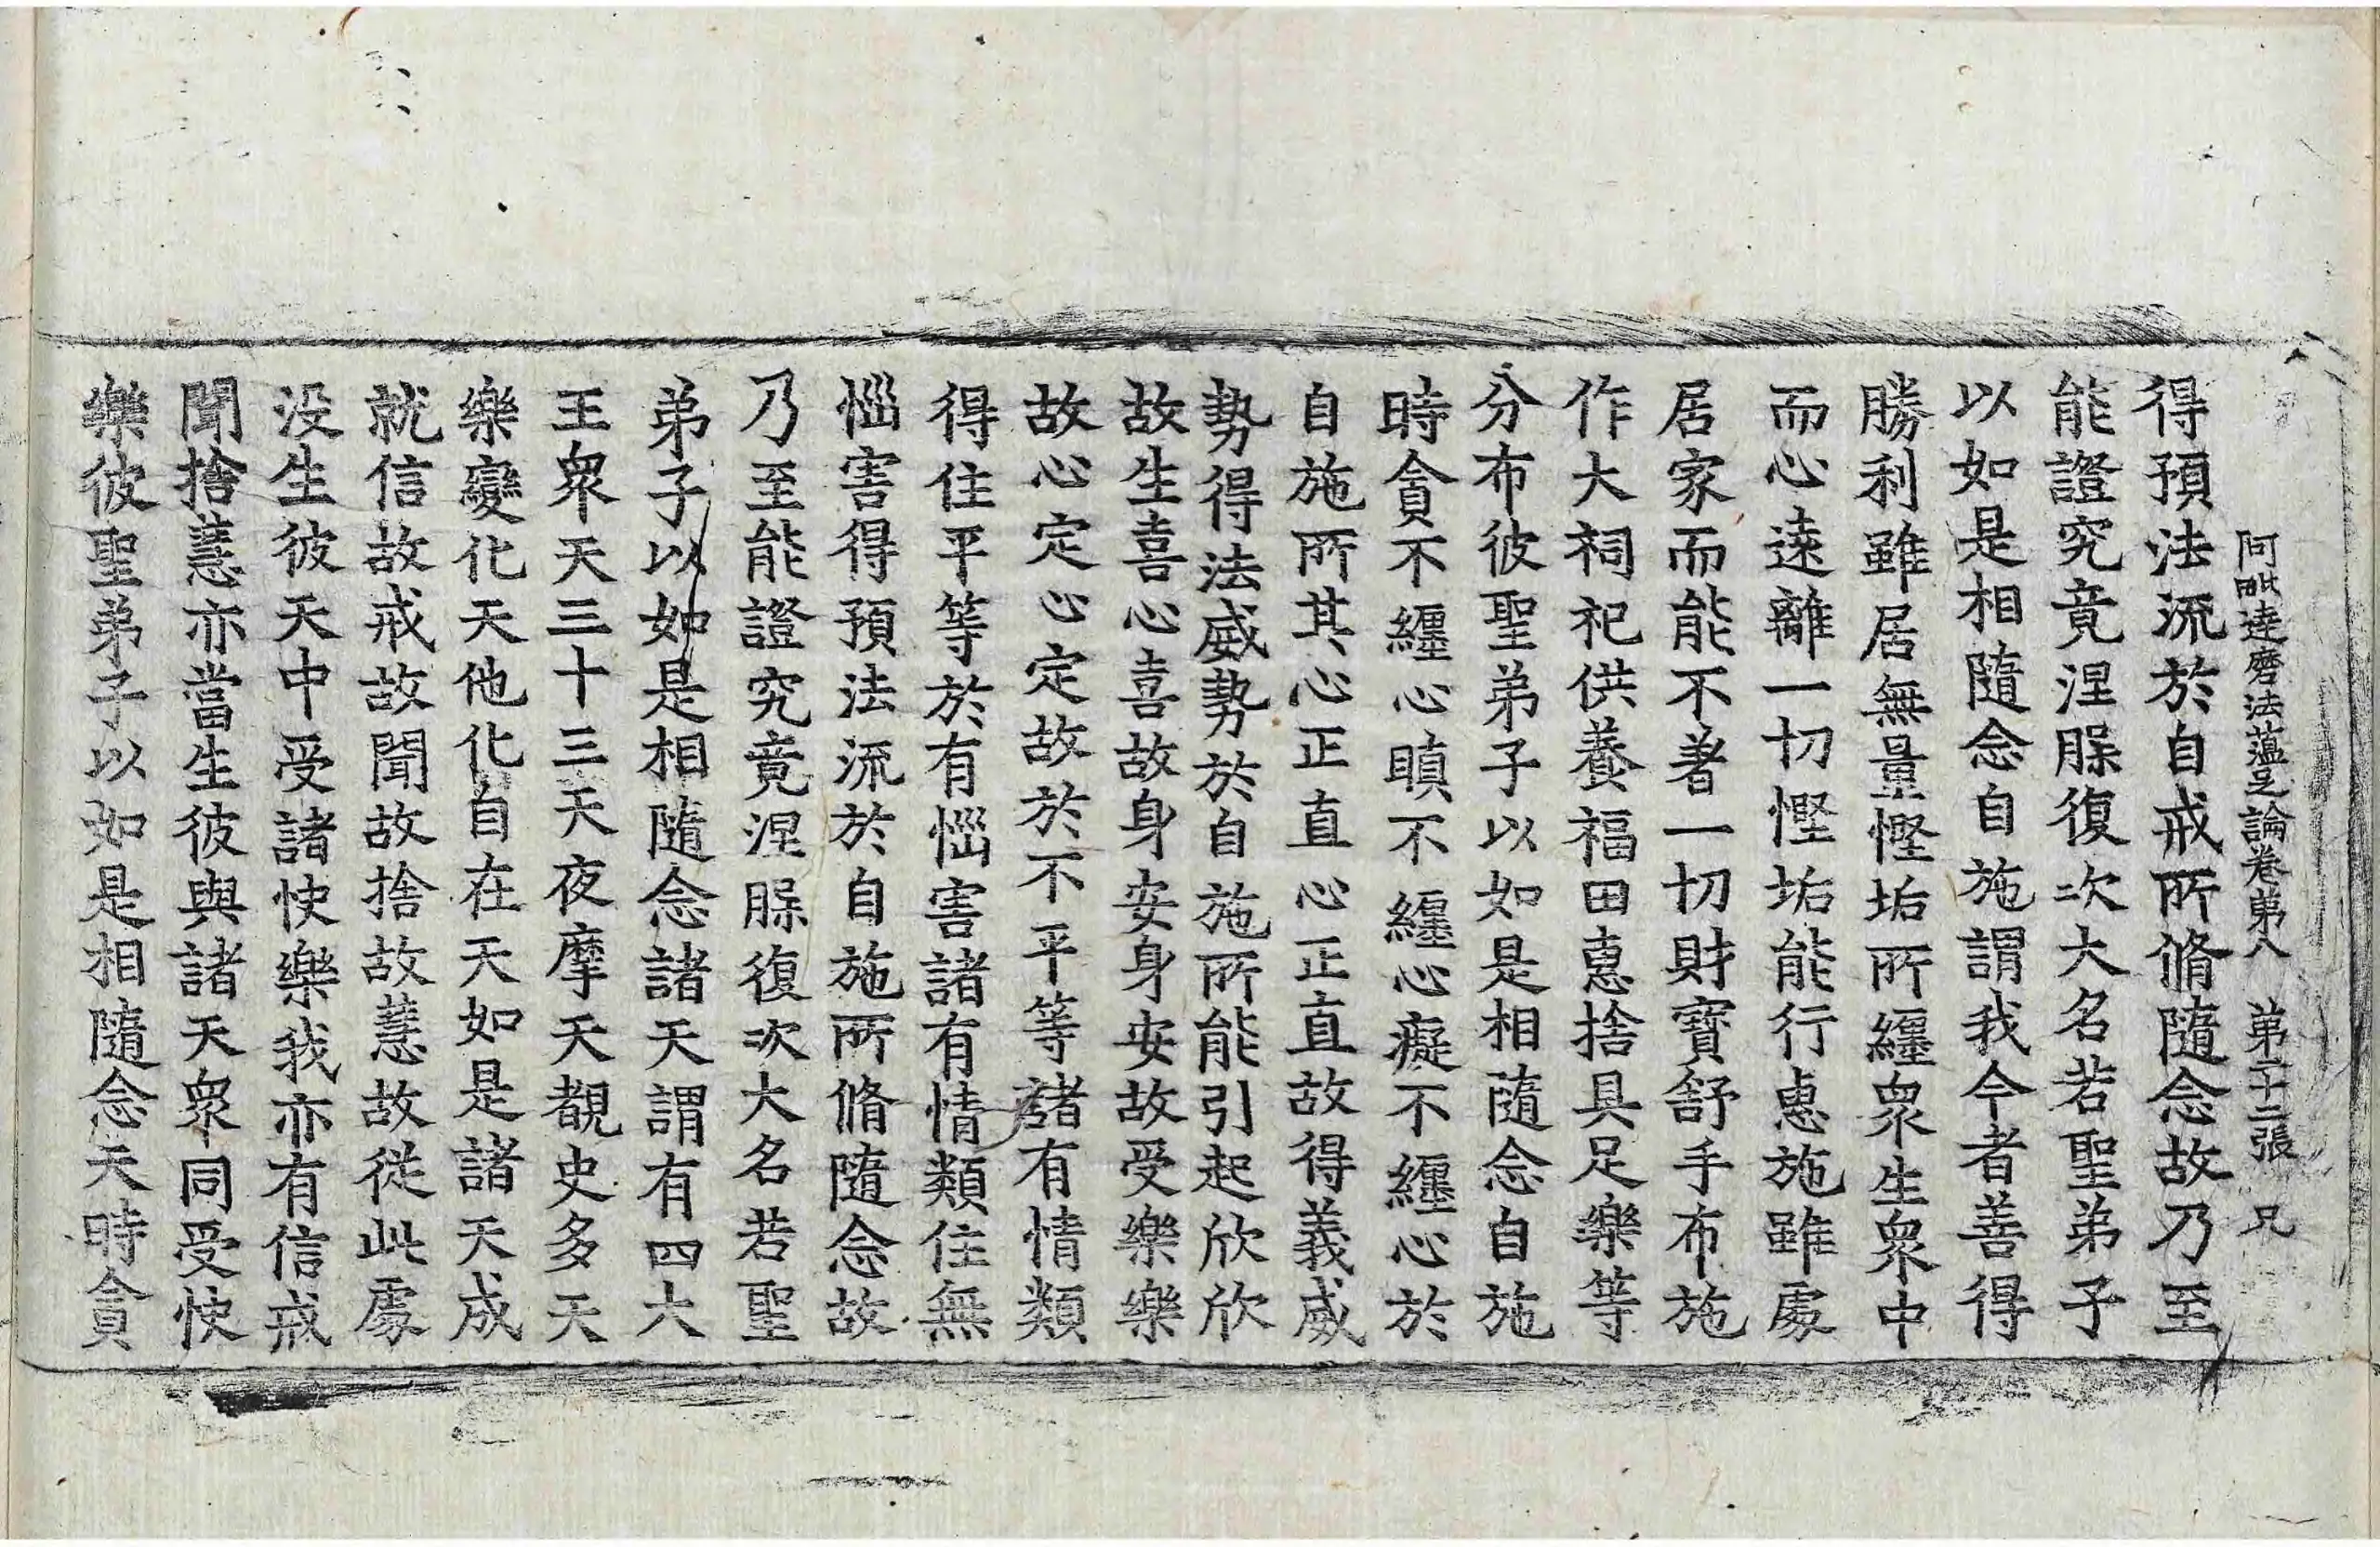 阿毗達磨法蘊足論卷第八 第二十二張 兄
得預法流於自戒所脩隨念故乃至
能證究竟涅脲復次大名若聖弟子
以如是相隨念自施謂我今者善得
勝利雖居無量慳垢所纏衆生衆中
而心遠離一切慳垢能行惠施雖處
居家而能不著一切財寶舒手布施
作大祠祀供養福田惠捨具足樂等
分布彼聖弟子以如是相隨念自施
時貪不纏心瞋不纏心癡不纏心於
自施所其心正直心正直故得義威
勢得法威勢於自施所能引起欣欣
故生喜心喜故身安身安故受樂樂
故心定心定故於不平等諸有情類
得住平等於有惱害諸有情類住無
惱害得預法流於自施所脩隨念故
乃至能證究竟涅脲復次大名若聖
弟子以如是相隨念諸天謂有四大
王衆天三十三天夜摩天覩史多天
樂變化天他化自在天如是諸天成
就信故戒故聞故捨故慧故從此處
没生彼天中受諸快樂我亦有信戒
聞捨慧亦當生彼與諸天衆同受快
樂彼聖弟子以如是相隨念天時貪